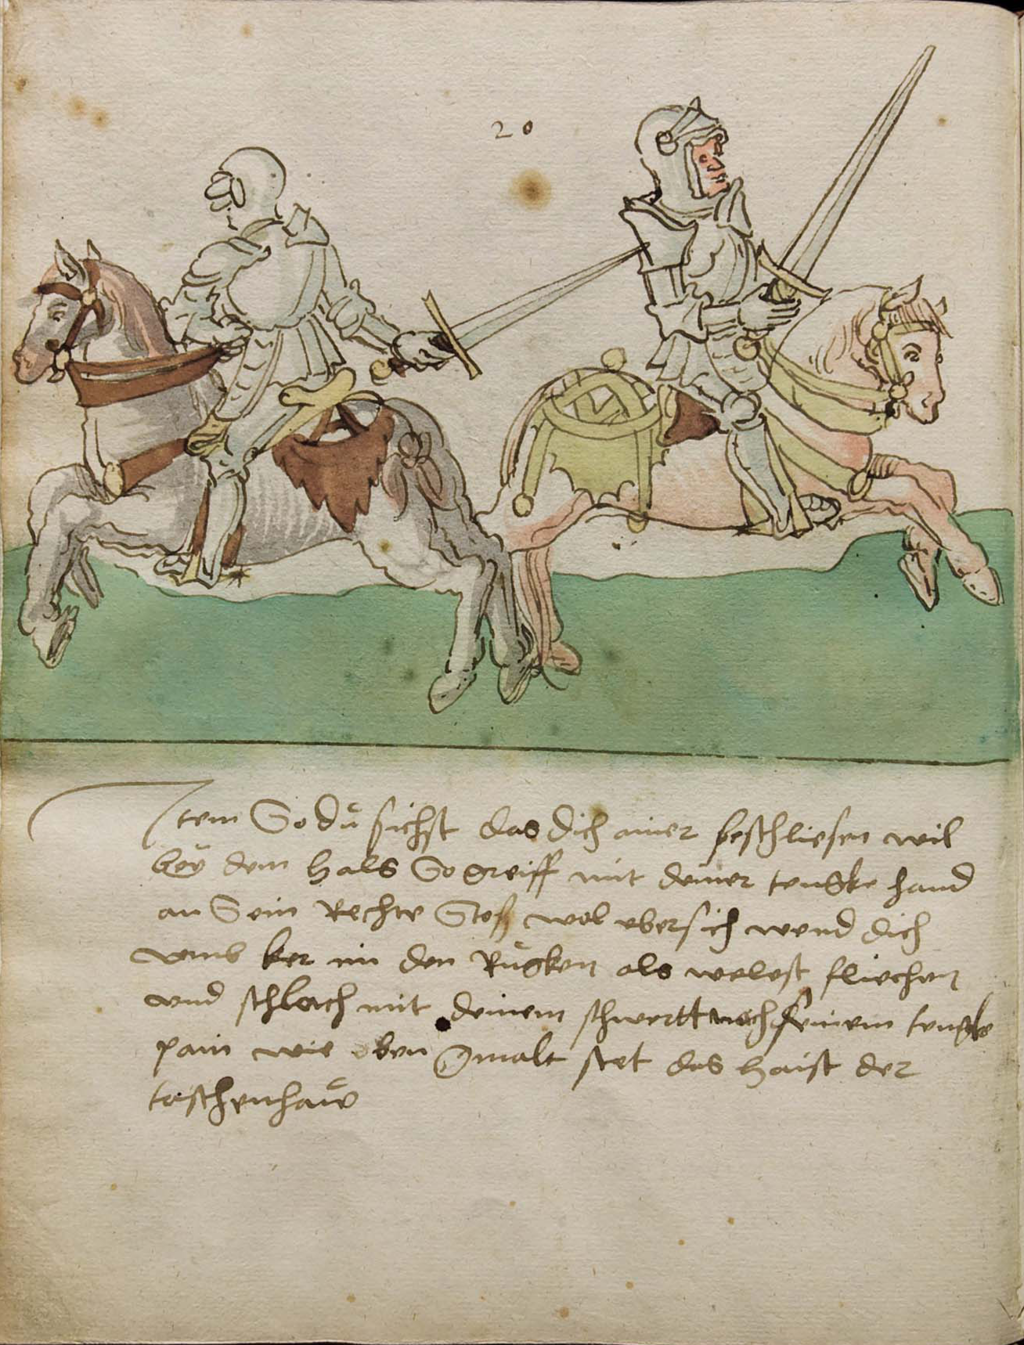 20
Item So du sichst das dich ainer beschliesen wil
bey dem hals So greiff mit deiner tengke hand
an Sein Rechte wol vbersich wend dich
vmb ker im den Rügken als welest fliechen
vnd schlach mit deinem schwertt nach seinem tengke
pain wie oben gmalt stet das haist der
taschenhaw